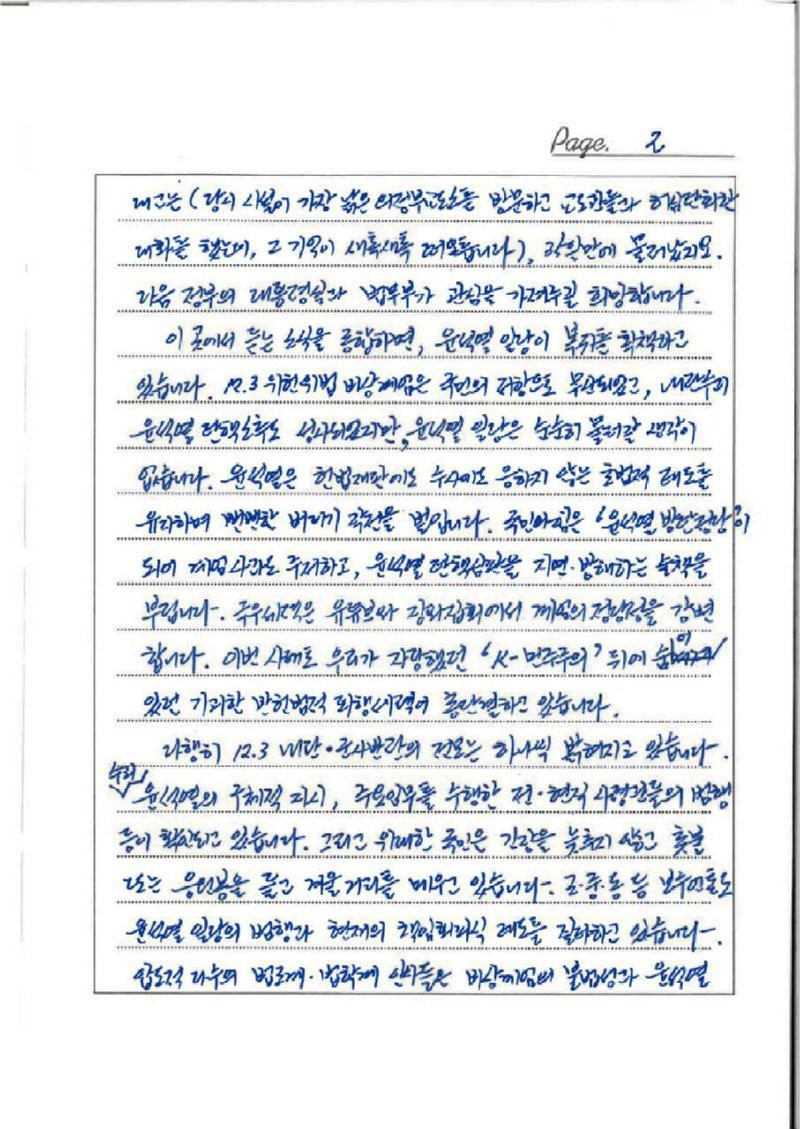 Page. 2
내고는 (당시 시설이 가장 낡은 의정부교도소를 방문하고 교도관들과 허심탄회한
대화를 했는데, 그 기억이 새록새록 떠오릅니다), 만에 물러났지요.
다음 정부의 대통령실과 법무부가 관심을 가져주길 희망합니다.
이 곳에서 듣는 소식을 종합하면, 윤석열 일당이 복귀를 획책하고
있습니다. 12.3 위헌위법 비상계엄은 국민의 저항으로 무산되었고, 내란수괴
윤석열 탄핵소추도 성사되었지만, 윤석열 일당은 순순히 물러갈 생각이
없습니다. 윤석열은 헌법재판에도 수사에도 응하지 않는 불법적 태도를
유지하며 뻔뻔한 버티기 작전을 벌입니다. 국민의힘은 '윤석열 방탄정당'이
되어 계엄사과도 주저하고, 윤석열 탄핵심판을 지연·방해하는 술책을
부립니다. 극우세력은 유튜브와 집회에서 계엄의 정당성을 강변
합니다. 이번 사태로 우리가 자랑했던 'K-민주주의' 뒤에 숨어
있던 기괴한 반헌법적 퇴행세력이 총단결하고 있습니다.
다행히 12.3 내란·군사반란의 전모는 하나씩 밝혀지고 있습니다.
수괴 윤석열의 구체적 지시, 주요임무를 수행한 전·현직 사령관들의 범행
등이 확인되고 있습니다. 그리고 위대한 국민은 긴장을 늦추지 않고 촛불
또는 응원봉을 들고 겨울 거리를 메우고 있습니다. 조·중·동 등 보수언론도
윤석열 일당의 범행과 현재의 책임회피식 태도를 질타하고 있습니다.
압도적 다수의 법조계·법학계 인사들은 비상계엄의 불법성과 윤석열